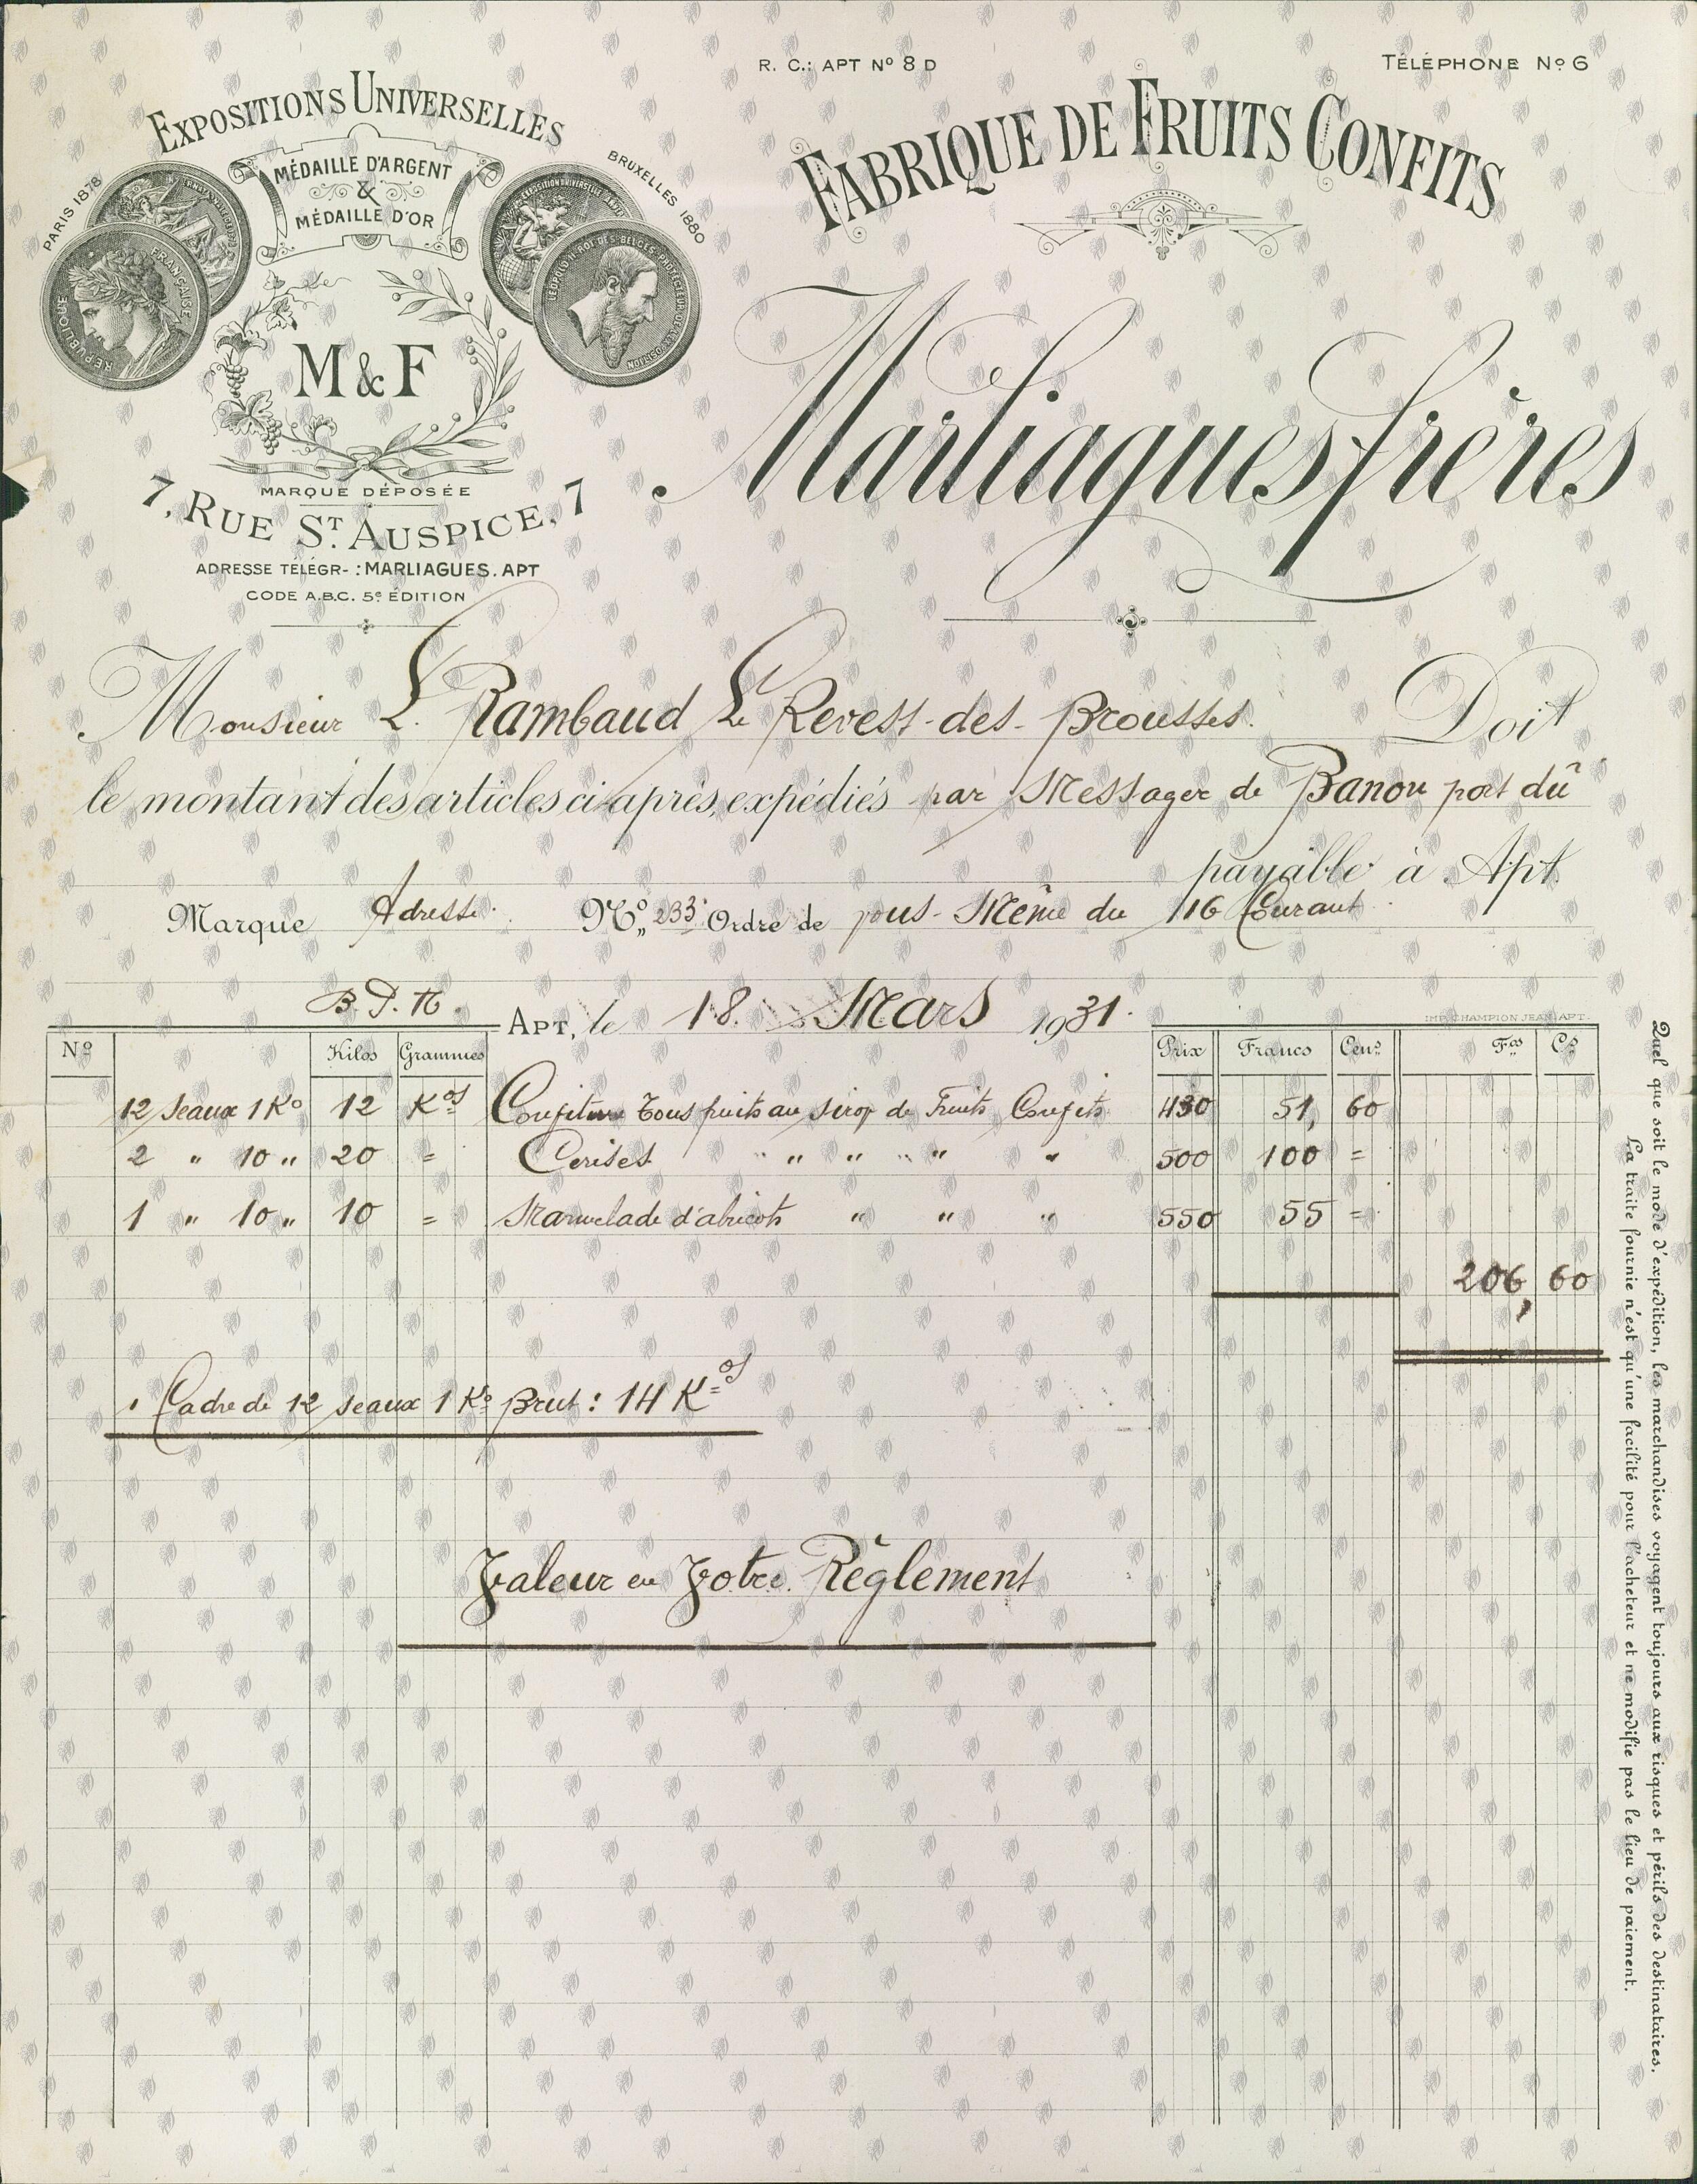 R. C.: APT Nº 8 D
TÉLÉPHONE Nº 6
EXPOSITIONS UNIVERSELLES
FABRIQUE DE FRUITS CONFITS
PARIS 1878
MÉDAILLE D'ARGENT
&
MÉDAILLE D'OR
BRUXELLES 1880
RÉPUBLIQUE FRANÇAISE
EXPOSITION UNIVERSELLE
LÉOPOLD II, ROI DES BELGES, PROTECTEUR DE L'EXPOSITION
M & F
Marliagues frères
MARQUE DÉPOSÉE
7, RUE ST. AUSPICE, 7
ADRESSE TÉLÉGR- : MARLIAGUES. APT
CODE A.B.C. 5e ÉDITION
Monsieur L. Rambaud Le Revest-des-Brousses. Doit
le montant des articles ci après, expédiés par Messager de Banon port dû
payable à Apt.
Marque Adresse. Nº 233 Ordre de vous-Même du 16 Courant
APT, le 18 Mars 1931.
IMP. CHAMPION JEAN, APT.
Nº Kilos Grammes Prix Francs Cens Fcs Cs
12 Seaux 1 Ko 12 Kos Confiture Tous fruits au sirop de Fruits Confits 430 51, 60
2 " 10 " 20 = Cerises " " " " " 500 100 =
1 " 10 " 10 = Marmelade d'abricots " " " 550 55 =
206, 60
1 Cadre de 12 seaux 1 Ko Brut : 14 Kos
Valeur en Votre Règlement
Quel que soit le mode d'expédition, les marchandises voyagent toujours aux risques et périls des destinataires.
La traite fournie n'est qu'une facilité pour l'acheteur et ne modifie pas le lieu de paiement.